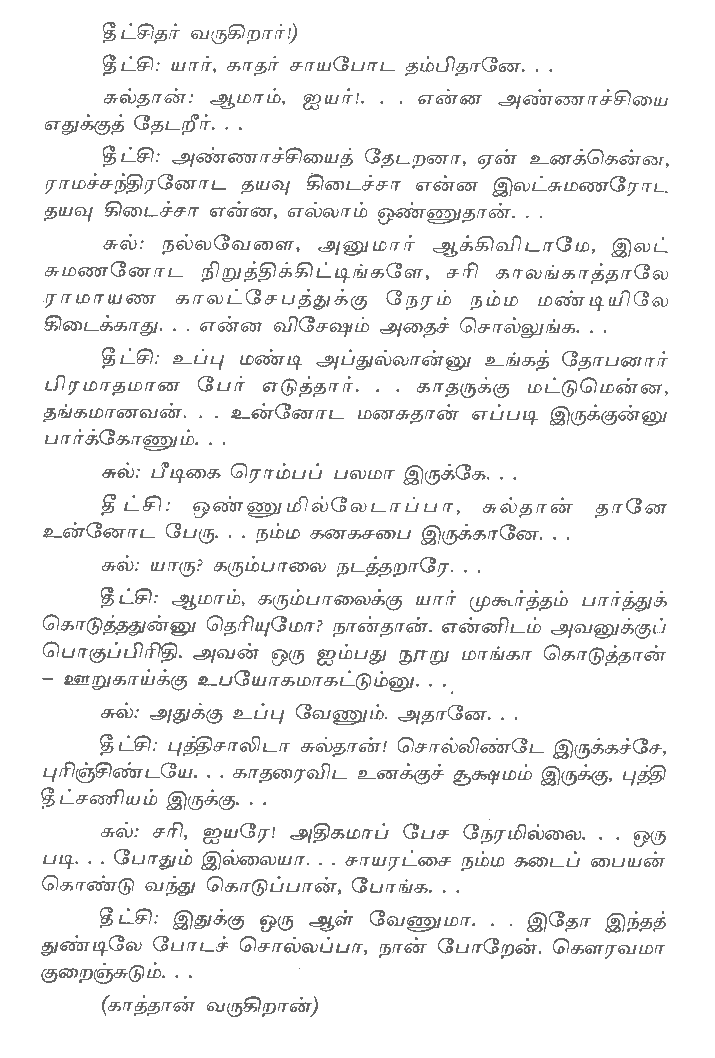 தீட்சிதர் வருகிறார்!)
தீட்சி: யார், காதர் சாயபோட தம்பிதானே. . .
சுல்தான்: ஆமாம், ஐயர்!. . . என்ன அண்ணாச்சியை
எதுக்குத் தேடறீர். . .
தீட்சி: அண்ணாச்சியைத் தேடறனா, ஏன் உனக்கென்ன,
ராமச்சந்திரனோட தயவு கிடைச்சா என்ன இலட்சுமணரோட
தயவு கிடைச்சா என்ன, எல்லாம் ஒண்ணுதான். . .
சுல்: நல்லவேளை, அனுமார் ஆக்கிவிடாமே, இலட்
சுமணனோட நிறுத்திக்கிட்டிங்களே, சரி காலங்காத்தாலே
ராமாயண காலட்சேபத்துக்கு நேரம் நம்ம மண்டியிலே
கிடைக்காது. . . என்ன விசேஷம் அதைச் சொல்லுங்க. . .
தீட்சி: உப்பு மண்டி அப்துல்லான்னு உங்கத் தோபனார்
பிரமாதமான பேர் எடுத்தார். . . காதருக்கு மட்டுமென்ன,
தங்கமானவன். . . உன்னோட மனசுதான் எப்படி இருக்குன்னு
பார்க்கோணும். . .
சுல்: பீடிகை ரொம்பப் பலமா இருக்கே. . .
தீட்சி: ஒண்ணுமில்லேடாப்பா, சுல்தான் தானே
உன்னோட பேரு. . . நம்ம கனகசபை இருக்கானே. . .
சுல்: யாரு? கரும்பாலை நடத்தறாரே. . .
தீட்சி: ஆமாம், கரும்பாலைக்கு யார் முகூர்த்தம் பார்த்துக்
கொடுத்ததுன்னு தெரியுமோ? நான்தான். என்னிடம் அவனுக்குப்
பொகுப்பிரிதி. அவன் ஒரு ஐம்பது நூறு மாங்கா கொடுத்தான்
– ஊறுகாய்க்கு உபயோகமாகட்டும்னு. . .
சுல்: அதுக்கு உப்பு வேணும். அதானே. . .
தீட்சி: புத்திசாலிடா சுல்தான்! சொல்லிண்டே இருக்கச்சே,
புரிஞ்சிண்டயே. . . காதரைவிட உனக்குச் சூக்ஷமம் இருக்கு, புத்தி
தீட்சணியம் இருக்கு. . .
சுல்: சரி, ஐயரே! அதிகமாப் பேச நேரமில்லை. . . ஒரு
படி. . . போதும் இல்லையா. . . சாயரட்சை நம்ம கடைப் பையன்
கொண்டு வந்து கொடுப்பான், போங்க. . .
தீட்சி: இதுக்கு ஒரு ஆள் வேணுமா. . . இதோ இந்தத்
துண்டிலே போடச் சொல்லப்பா, நான் போறேன். கௌரவமா
குறைஞ்சுடும். . .
(காத்தான் வருகிறான்)